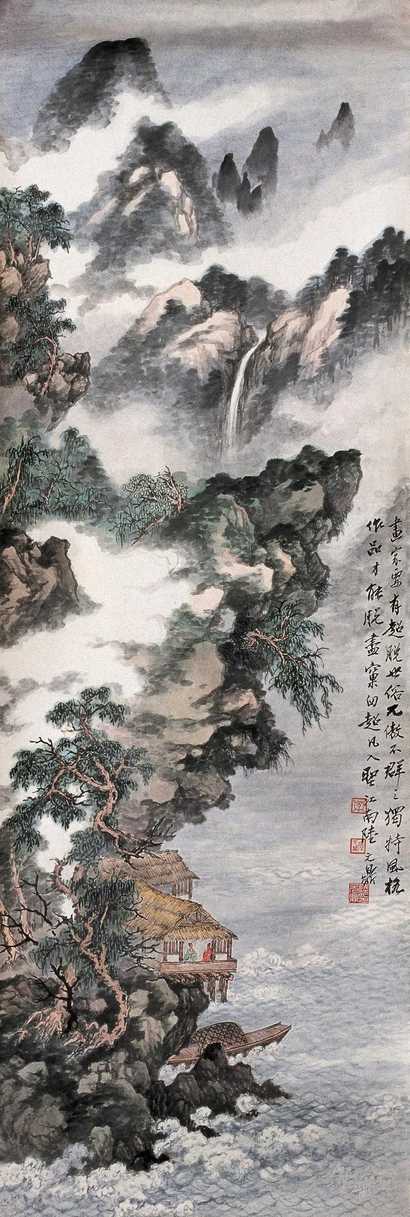 畫家要有超脱世俗兀傲不群之獨特風格
作品才能脱畫窠臼超凡入聖江南陸元鼎